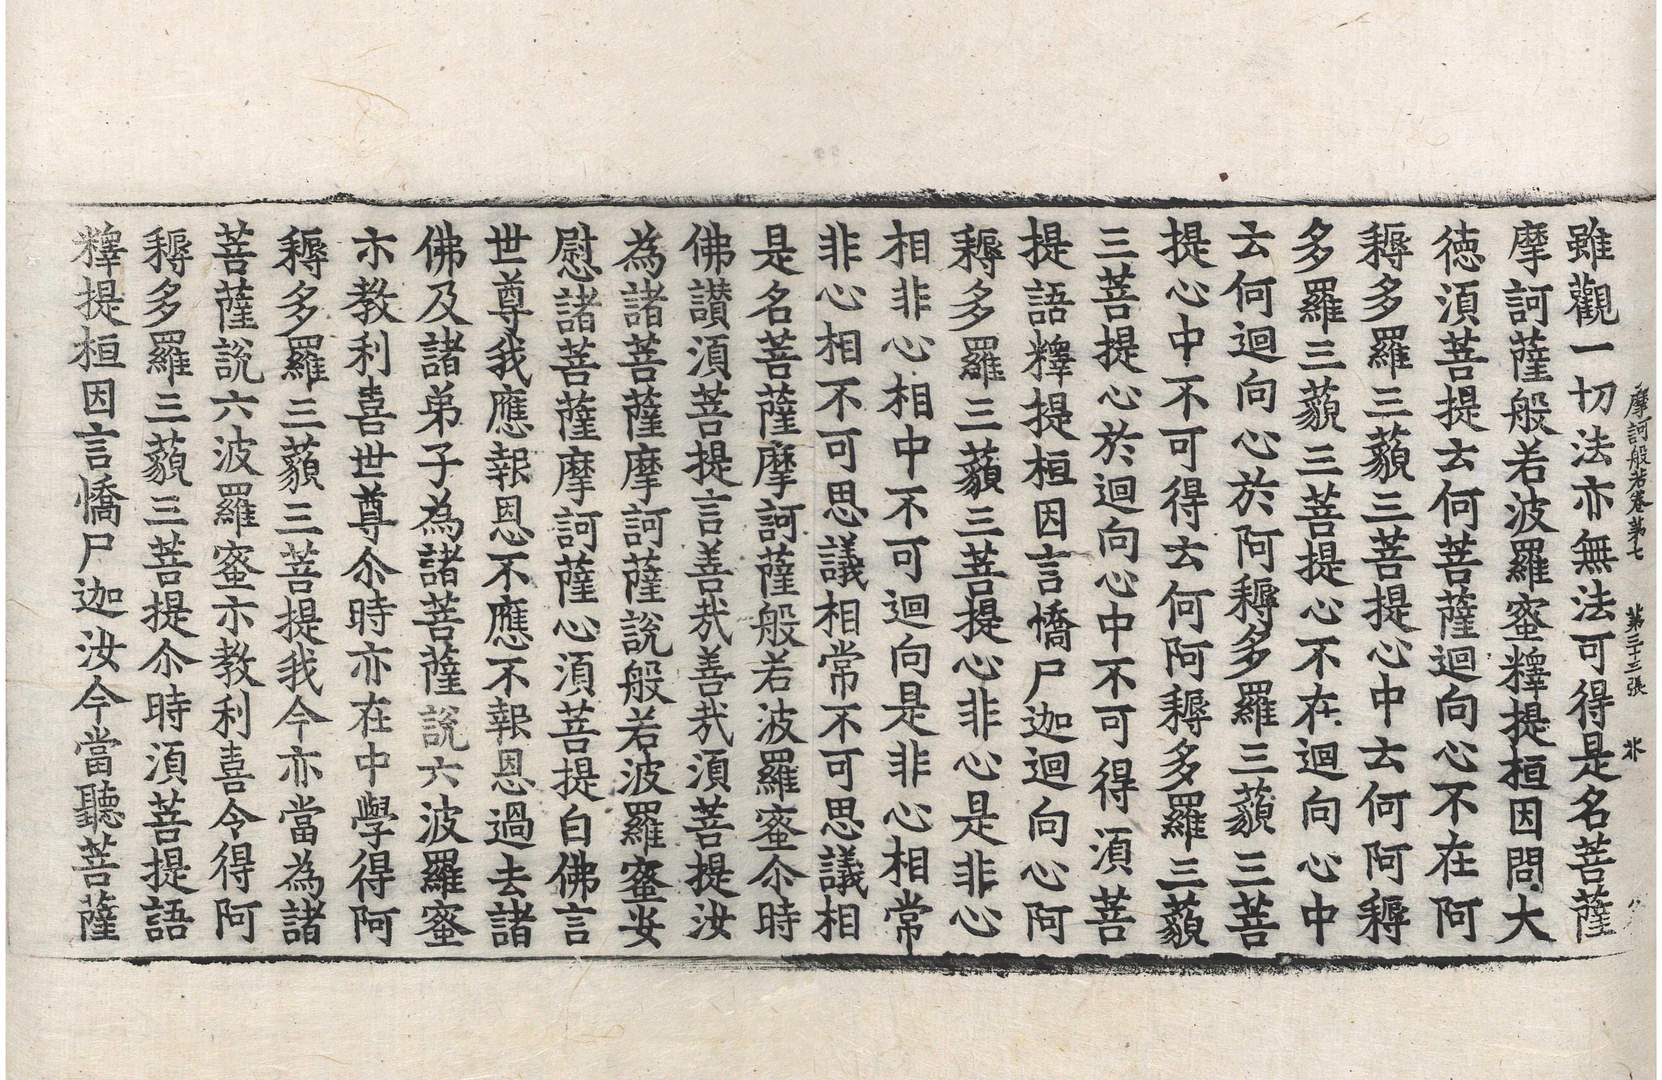 摩訶般若卷第七　第三十三張　氷
雖觀一切法亦無法可得是名菩薩
摩訶薩般若波羅蜜釋提桓因問大
德湏菩提云何菩薩迴向心不在阿
耨多羅三藐三菩提心中云何阿耨
多羅三藐三菩提心不在迴向心中
云何迴向心於阿耨多羅三藐三菩
提心中不可得云何阿耨多羅三藐
三菩提心於迴向心中不可得湏菩
提語釋提桓因言憍尸迦迴向心阿
耨多羅三藐三菩提心非心是非心
相非心相中不可迴向是非心相常
非心相不可思議相常不可思議相
是名菩薩摩訶薩般若波羅蜜尒時
佛讃湏菩提言善㢤善㢤湏菩提汝
為諸菩薩摩訶薩說般若波羅蜜安
慰諸菩薩摩訶薩心湏菩提白佛言
世尊我應報恩不應不報恩過去諸
佛及諸弟子為諸菩薩說六波羅蜜
亦教利喜世尊尒時亦在中學得阿
耨多羅三藐三菩提我今亦當為諸
菩薩說六波羅蜜亦教利喜令得阿
耨多羅三藐三菩提尒時湏菩提語
釋提桓因言憍尸迦汝今當聽菩薩